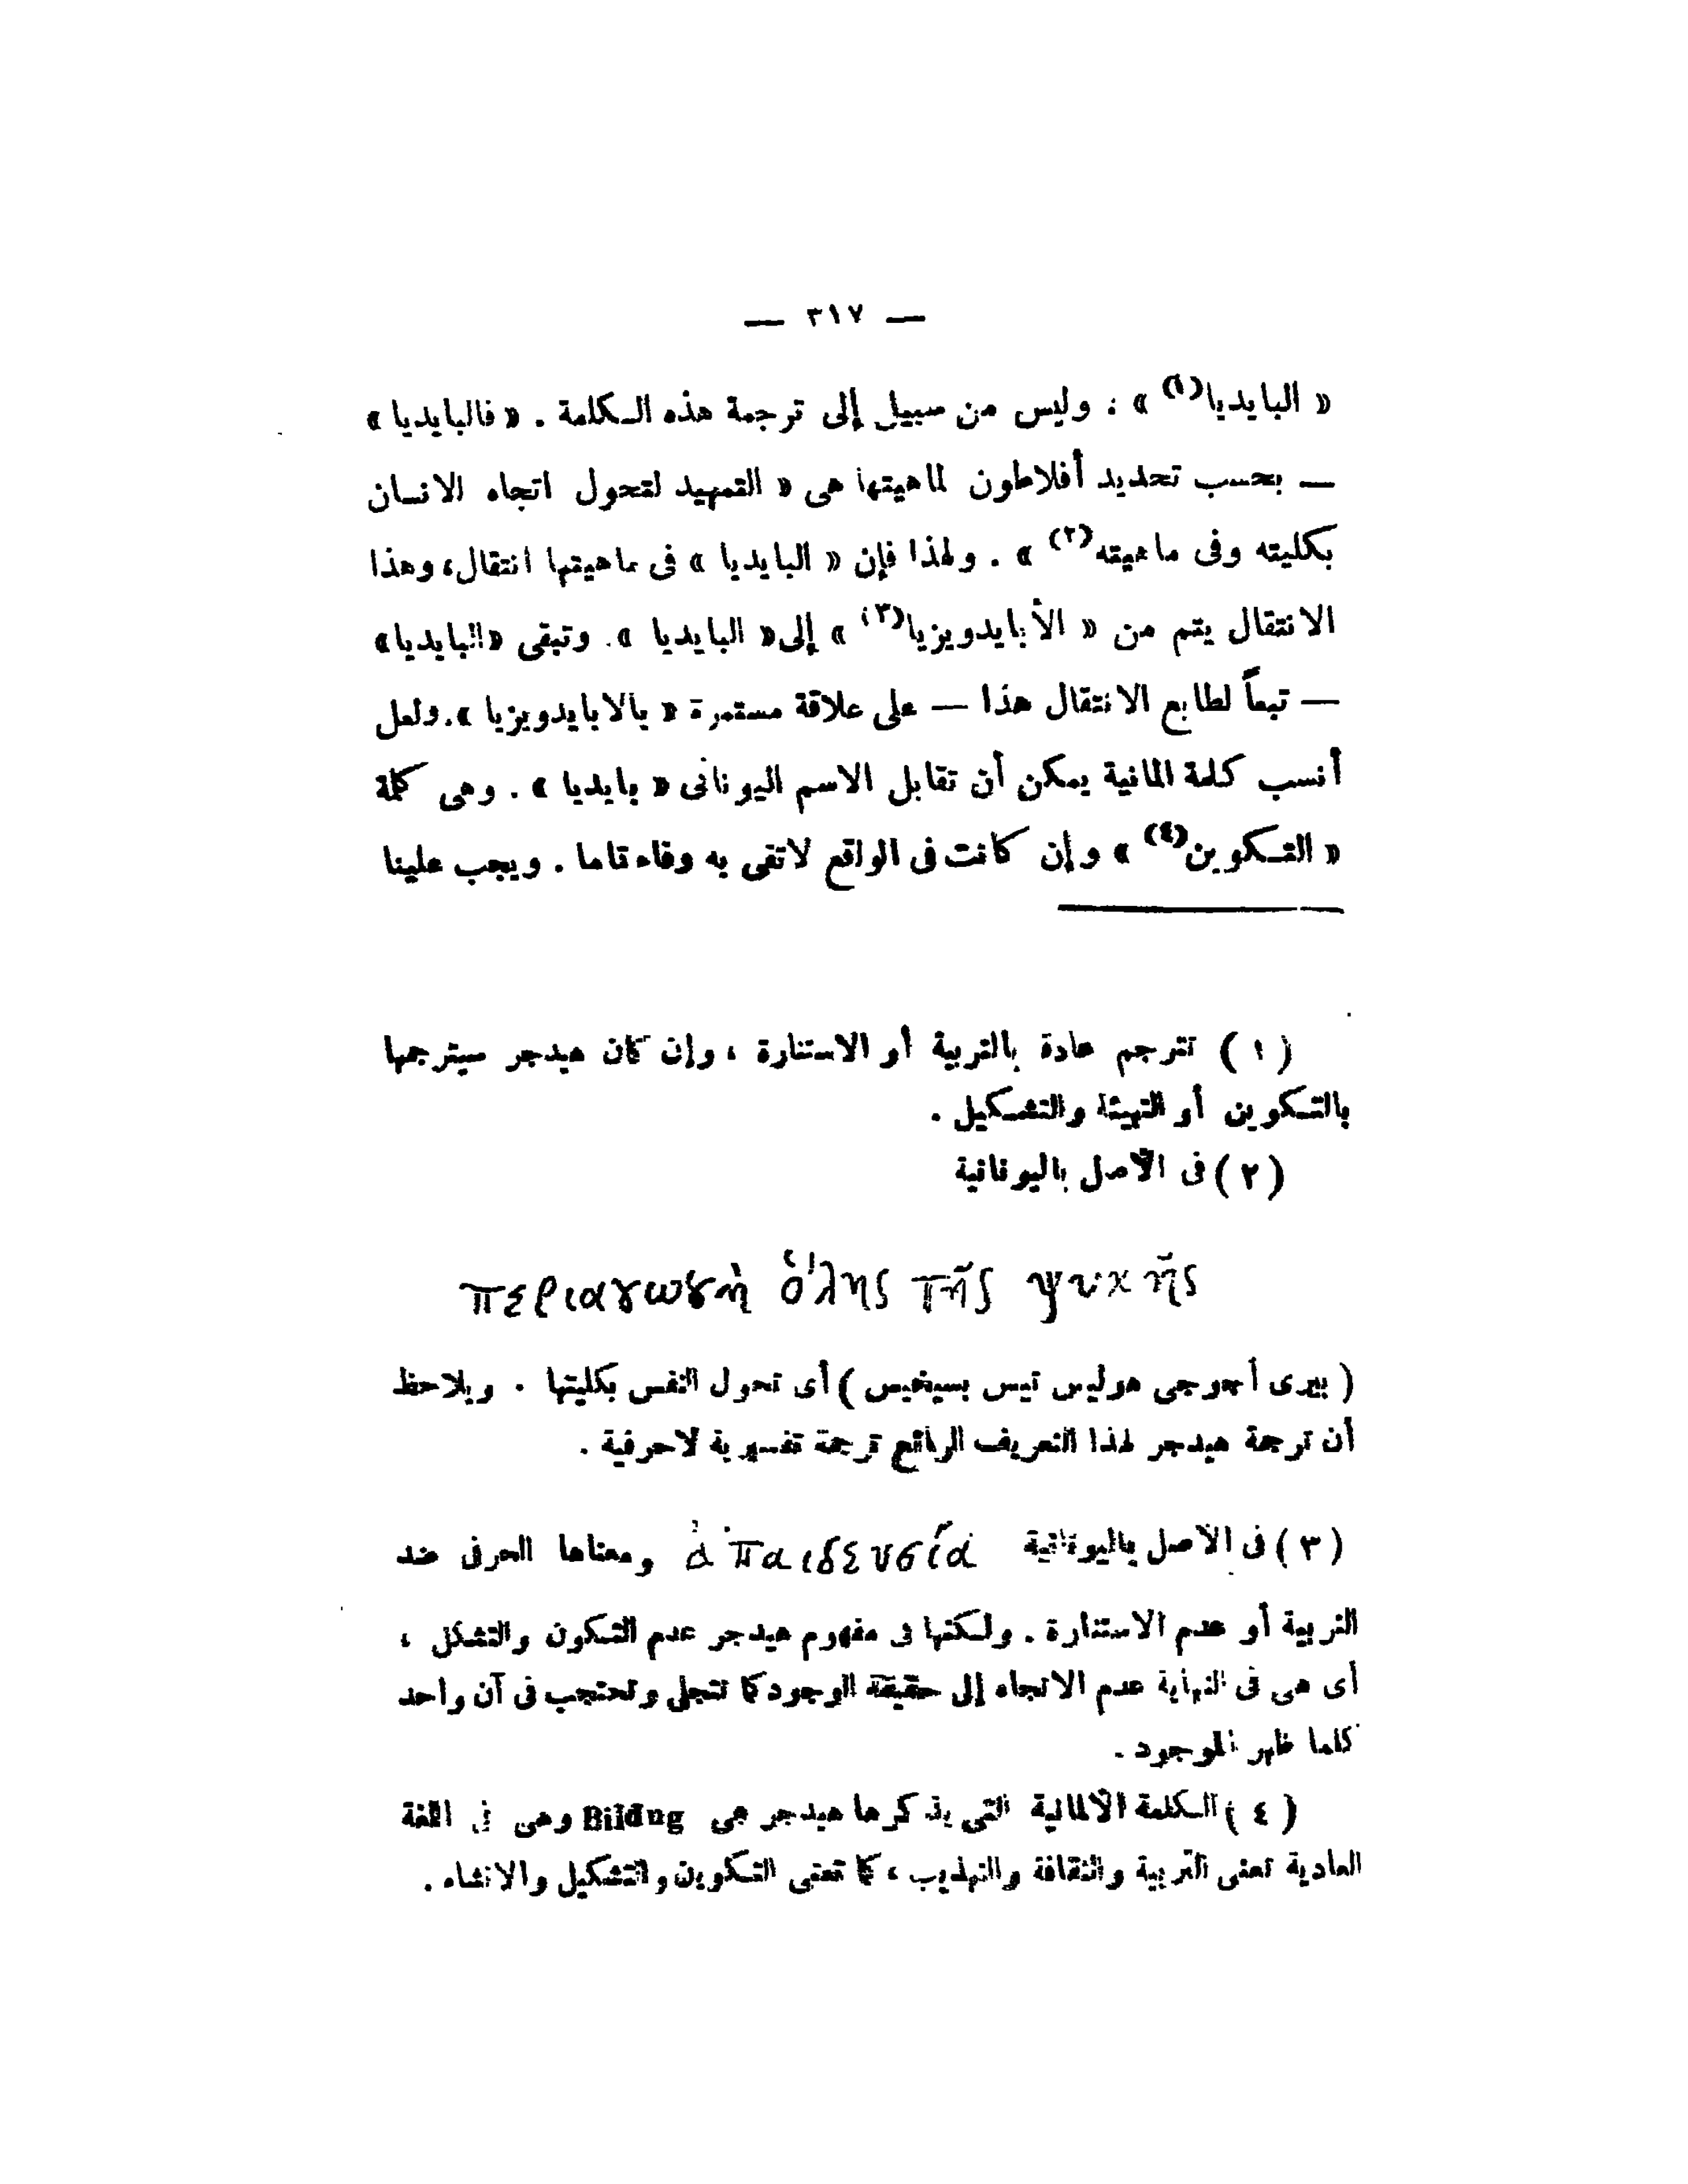 — ٣١٧ —
« البايديا(١) » ، وليس من سبيل إلى ترجمة هذه الكلمة . « فالبايديا »
— بحسب تحديد أفلاطون لماهيتها هى « التمهيد لتحول اتجاه الانسان
بكليته وفى ماهيته(٢) » . ولهذا فإن « البايديا » فى ماهيتها انتقال، وهذا
الانتقال يتم من « الأبايدويزيا(٣) » إلى « البايديا » . وتبقى « البايديا »
— تبعاً لطابع الانتقال هذا — على علاقة مستمرة « بالابايدويزيا ». ولعل
أنسب كلمة المانية يمكن أن تقابل الاسم اليونانى « بايديا » . وهى كلمة
« التكوين(٤) » وإن كانت فى الواقع لاتفى به وفاء تاما . ويجب علينا
( ١ ) تترجم عادة بالتربية أو الاستنارة ، وإن كان هيدجر سيترجمها
بالتكوين أو التهيئة والتشكيل .
( ٢ ) فى الأصل باليونانية
περιαγωγὴ ὅλης τῆς ψυχῆς
( بيرى أجوجى هوليس تيس بسيخيس ) أى تحول النفس بكليتها . ويلاحظ
أن ترجمة هيدجر لهذا التعريف الرائع ترجمة تفسيرية لاحرفية .
( ٣ ) فى الأصل باليونانية ἀπαιδευσία ومعناها الحرفى ضد
التربية أو عدم الاستنارة . ولكنها فى مفهوم هيدجر عدم التكون والتشكل ،
أى هى فى النهاية عدم الاتجاه إلى حقيقة الوجود كما تتجلى وتحتجب فى آن واحد
كلما ظهر الموجود .
( ٤ ) الكلمة الألمانية التى يذكرها هيدجر هى Bildug وهى فى اللغة
العادية تعنى التربية والثقافة والتهذيب ، كما تعنى التكوين والتشكيل والانشاء .